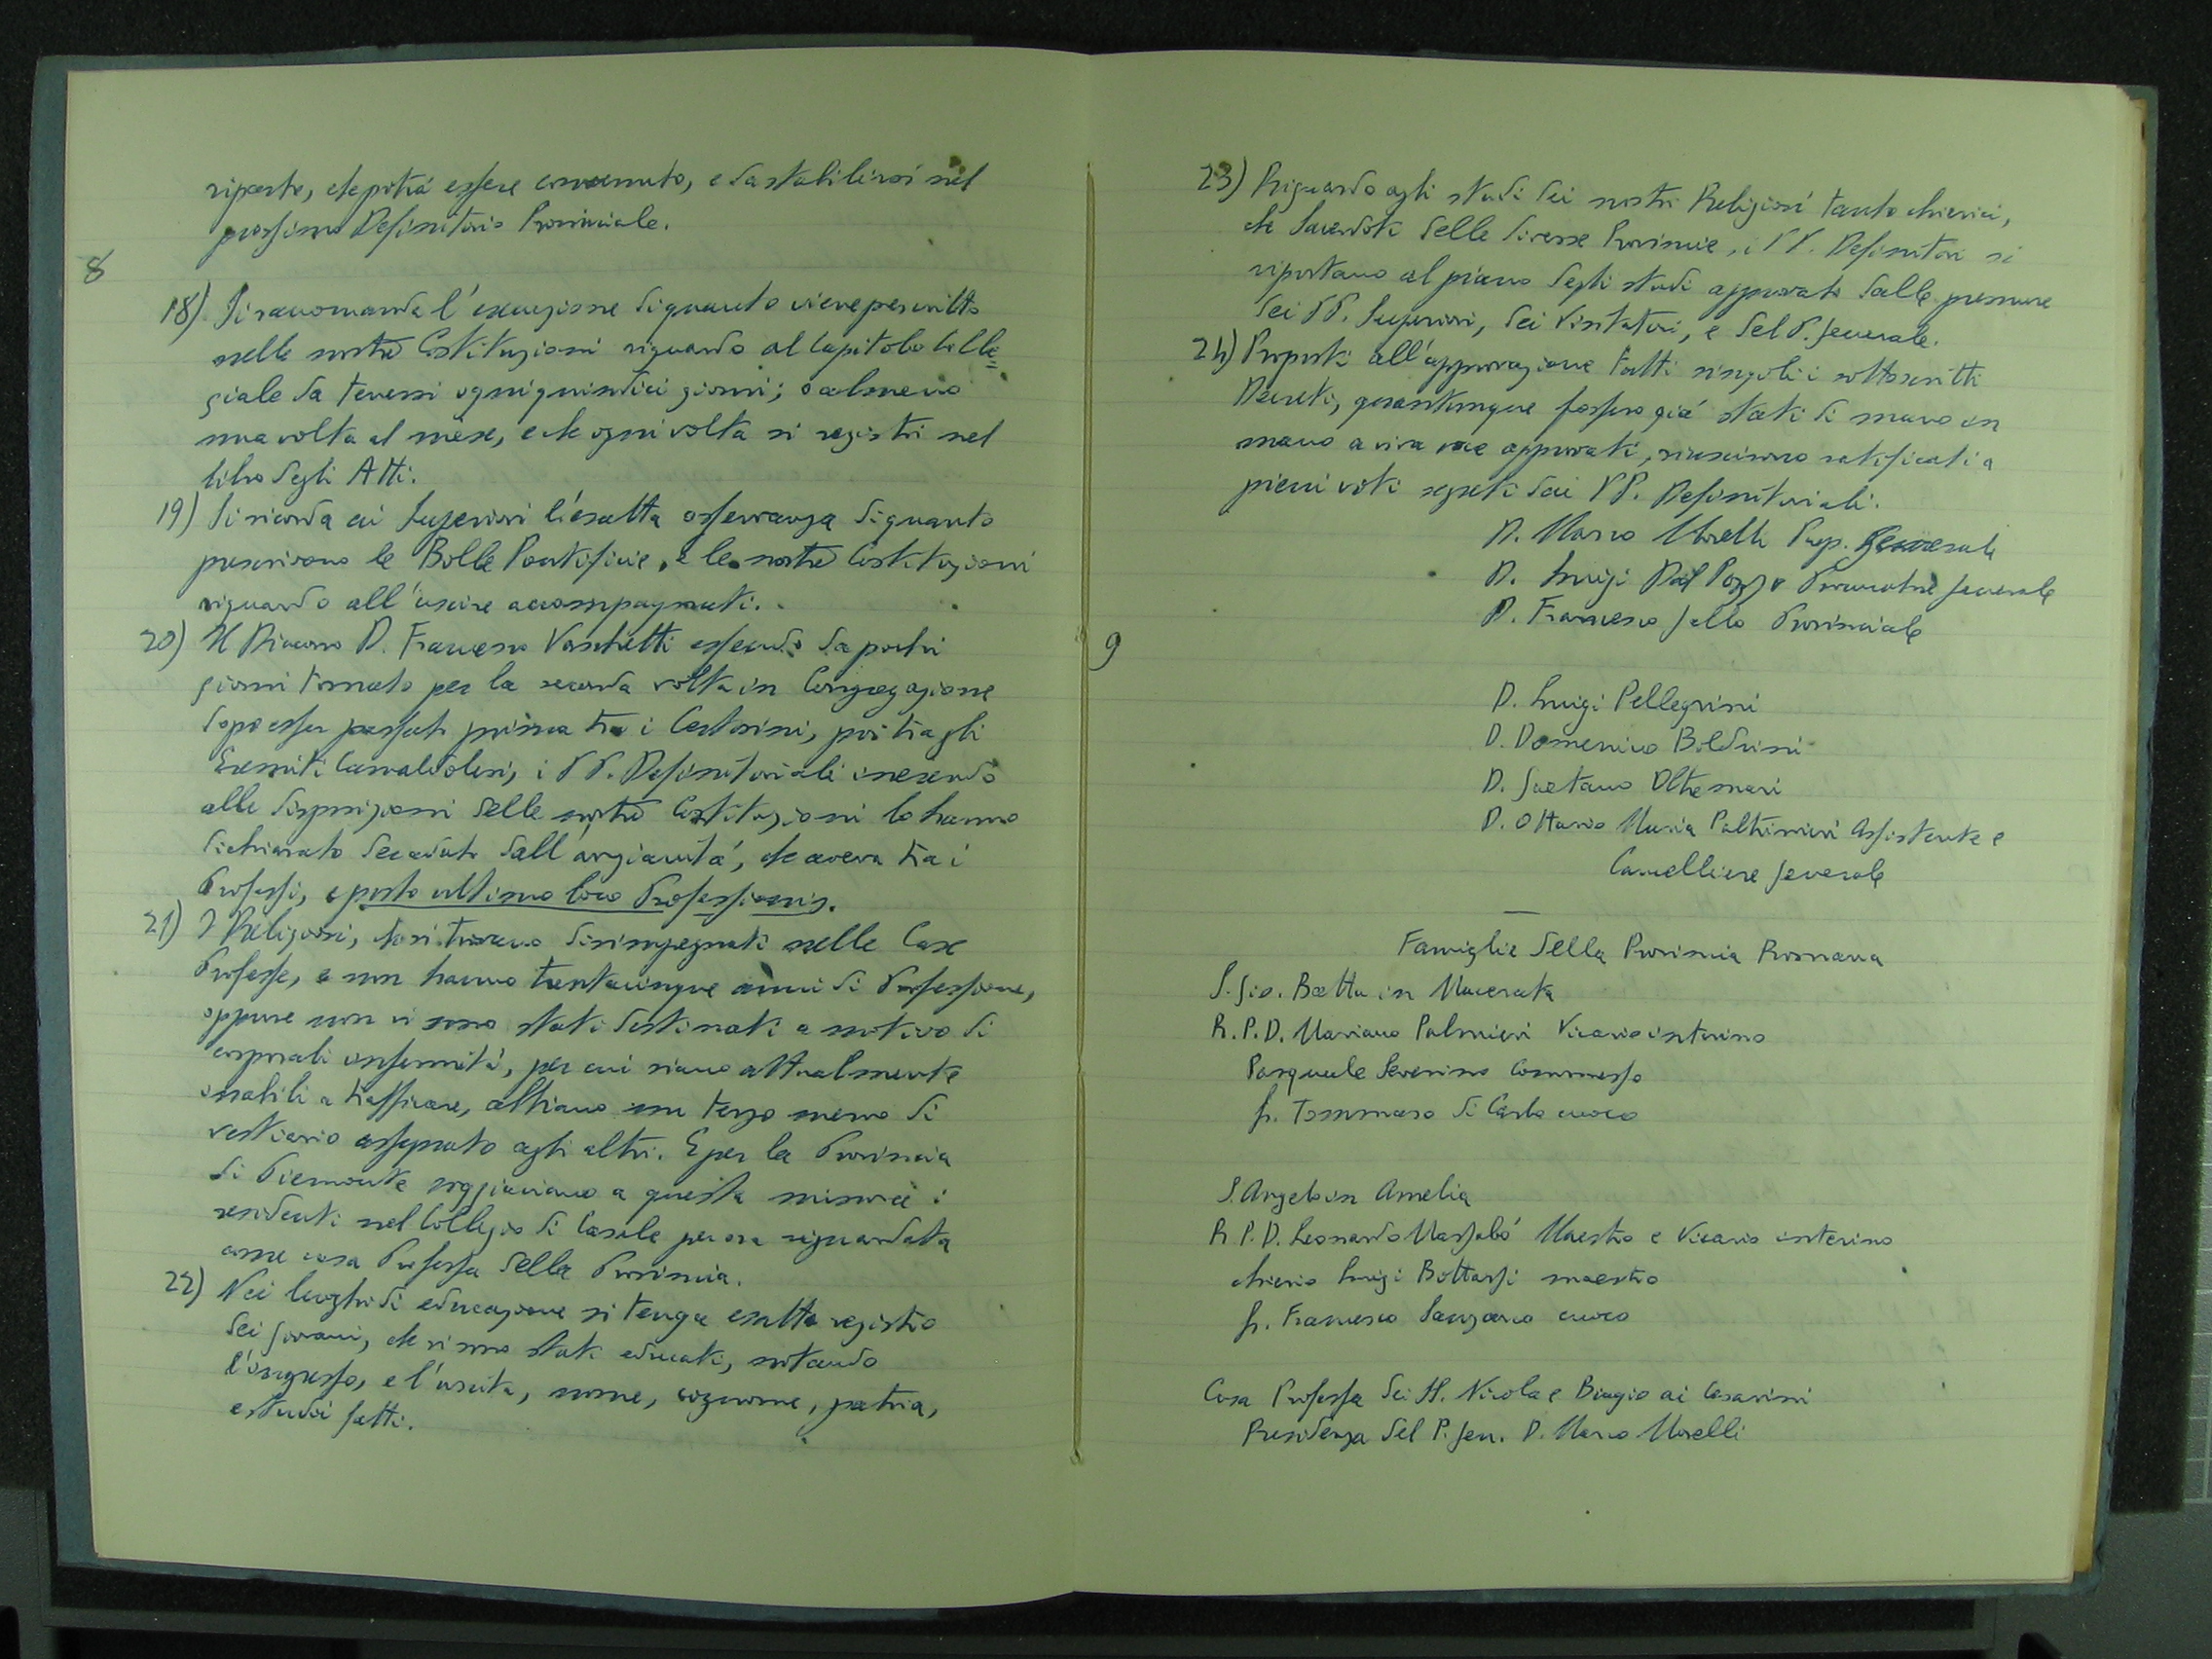 riparto, che potrà essere convenuto, e da stabilirsi nel
prossimo Definitorio Provinciale.
8
18) Si raccomanda l'esecuzione di quanto viene perscritto
nelle nostre Costituzioni riguardo al Capitolo Colle=
giale da tenersi ogni quindici giorni; o almeno
una volta al mese, e che ogni volta si registri nel
libro degli Atti.
19) Si ricorda ai Superiori l'esatta osservanza di quanto
prescrivono le Bolle Pontificie, e le nostre Costituzioni
riguardo all'uscire accompagnati.
20) Il Diacono D. Francesco Vaschetti essendo da pochi
giorni tornato per la seconda volta in Congregazione
dopo esser passato prima tra i Certosini, poi tra gli
Eremiti Camaldolesi, i PP. Definitoriali inerendo
alle disposizioni delle nostre Costituzioni lo hanno
dichiarato decaduto dall'anzianità, che aveva tra i
Professi, e posto ultimo loco Professionis.
21) I Religiosi, che si trovano disimpegnati nelle Case
Professe, e non hanno trentacinque anni di Professione,
oppure non vi sono stati destinati a motivo di
corporali infermità, per cui siano attualmente
inabili a trafficare, abbiano un terzo meno di
vestiario assegnato agli altri. E per la Provincia
di Piemonte soggiacciano a questa misura i
residenti nel Collegio di Casale per ora riguardata
come casa Professa della Provincia.
22) Nei luoghi di educazione si tenga esatto registro
dei giovani, che vi sono stati educati, notando
l'ingresso, e l'uscita, nome, cognome, patria,
e studi fatti.
23) Riguardo agli studi dei nostri Religiosi tanto chierici,
che Sacerdoti delle diverse Provincie, i PP. Definitori si
riportano al piano degli studi approvato dalle premure
dei PP. Superiori, dei Visitatori, e del P. Generale.
24) Proposti all'approvazione tutti singoli i sottoscritti
Decreti, quantunque fossero già stati di mano in
mano a viva voce approvati, riuscirono ratificati a
pieni voti segreti dai PP. Definitoriali.
D. Marco Morelli Prep. Generale
D. Luigi Dal Pozzo Procuratore Generale
D. Francesco Gallo Provinciale
9
D. Luigi Pellegrini
D. Domenico Boldrini
D. Gaetano Oltremari
D. Ottavio Maria Paltrinieri Assistente e
Cancelliere Generale
Famiglie della Provincia Romana
S. Gio. Batta in Macerata
R. P. D. Mariano Palmieri Vicario interino
Pasquale Severino Commesso
fr. Tommaso di Carlo cuoco
S. Angelo in Amelia
R. P. D. Leonardo Massabò Maestro e Vicario interino
chierico Luigi Bottassi maestro
fr. Francesco Sanzano cuoco
Casa Professa dei SS. Nicola e Biagio ai Cesarini
Residenza del P. Gen. D. Marco Morelli